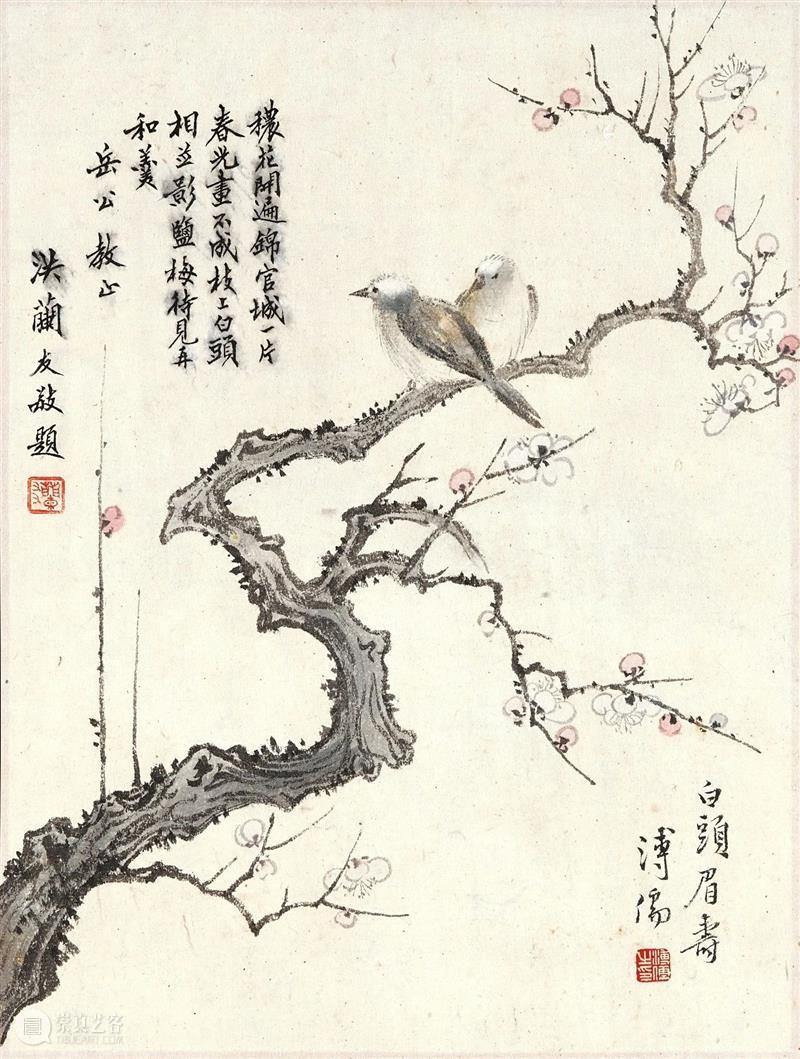 穠花開遍錦官城一片
春光畫不成枝上白頭
相並影鹽梅待見再
和羹
岳公教正
洪蘭友敬題
白頭眉壽
溥儒
溥儒之印
崇真艺客
TRUEART.COM